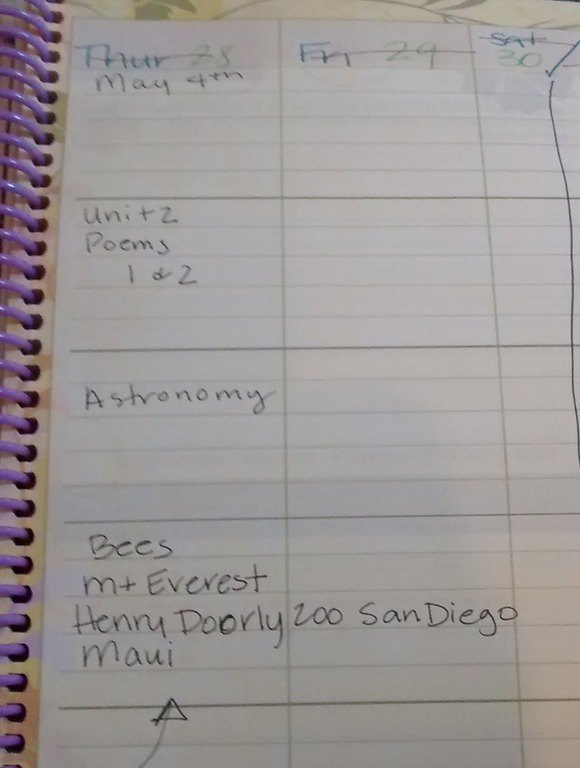 Thur 28 Fri 29 Sat 30
May 4th
Unit 2
Poems
1 & 2
Astronomy
Bees
mt Everest
Henry Doorly zoo San Diego
Maui